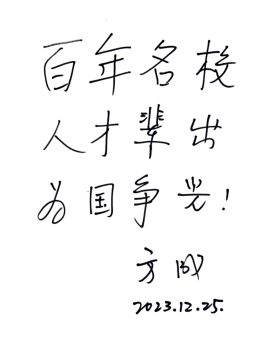 百年名校
人才辈出
为国争光!
方成
2023.12.25.